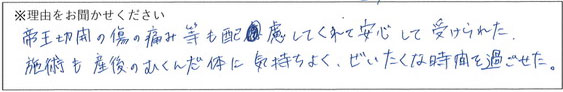 ※理由をお聞かせください
帝王切開の傷の痛み等も配慮してくれて安心して受けられた。
施術も産後のむくんだ体に気持ちよく、ぜいたくな時間を過ごせた。